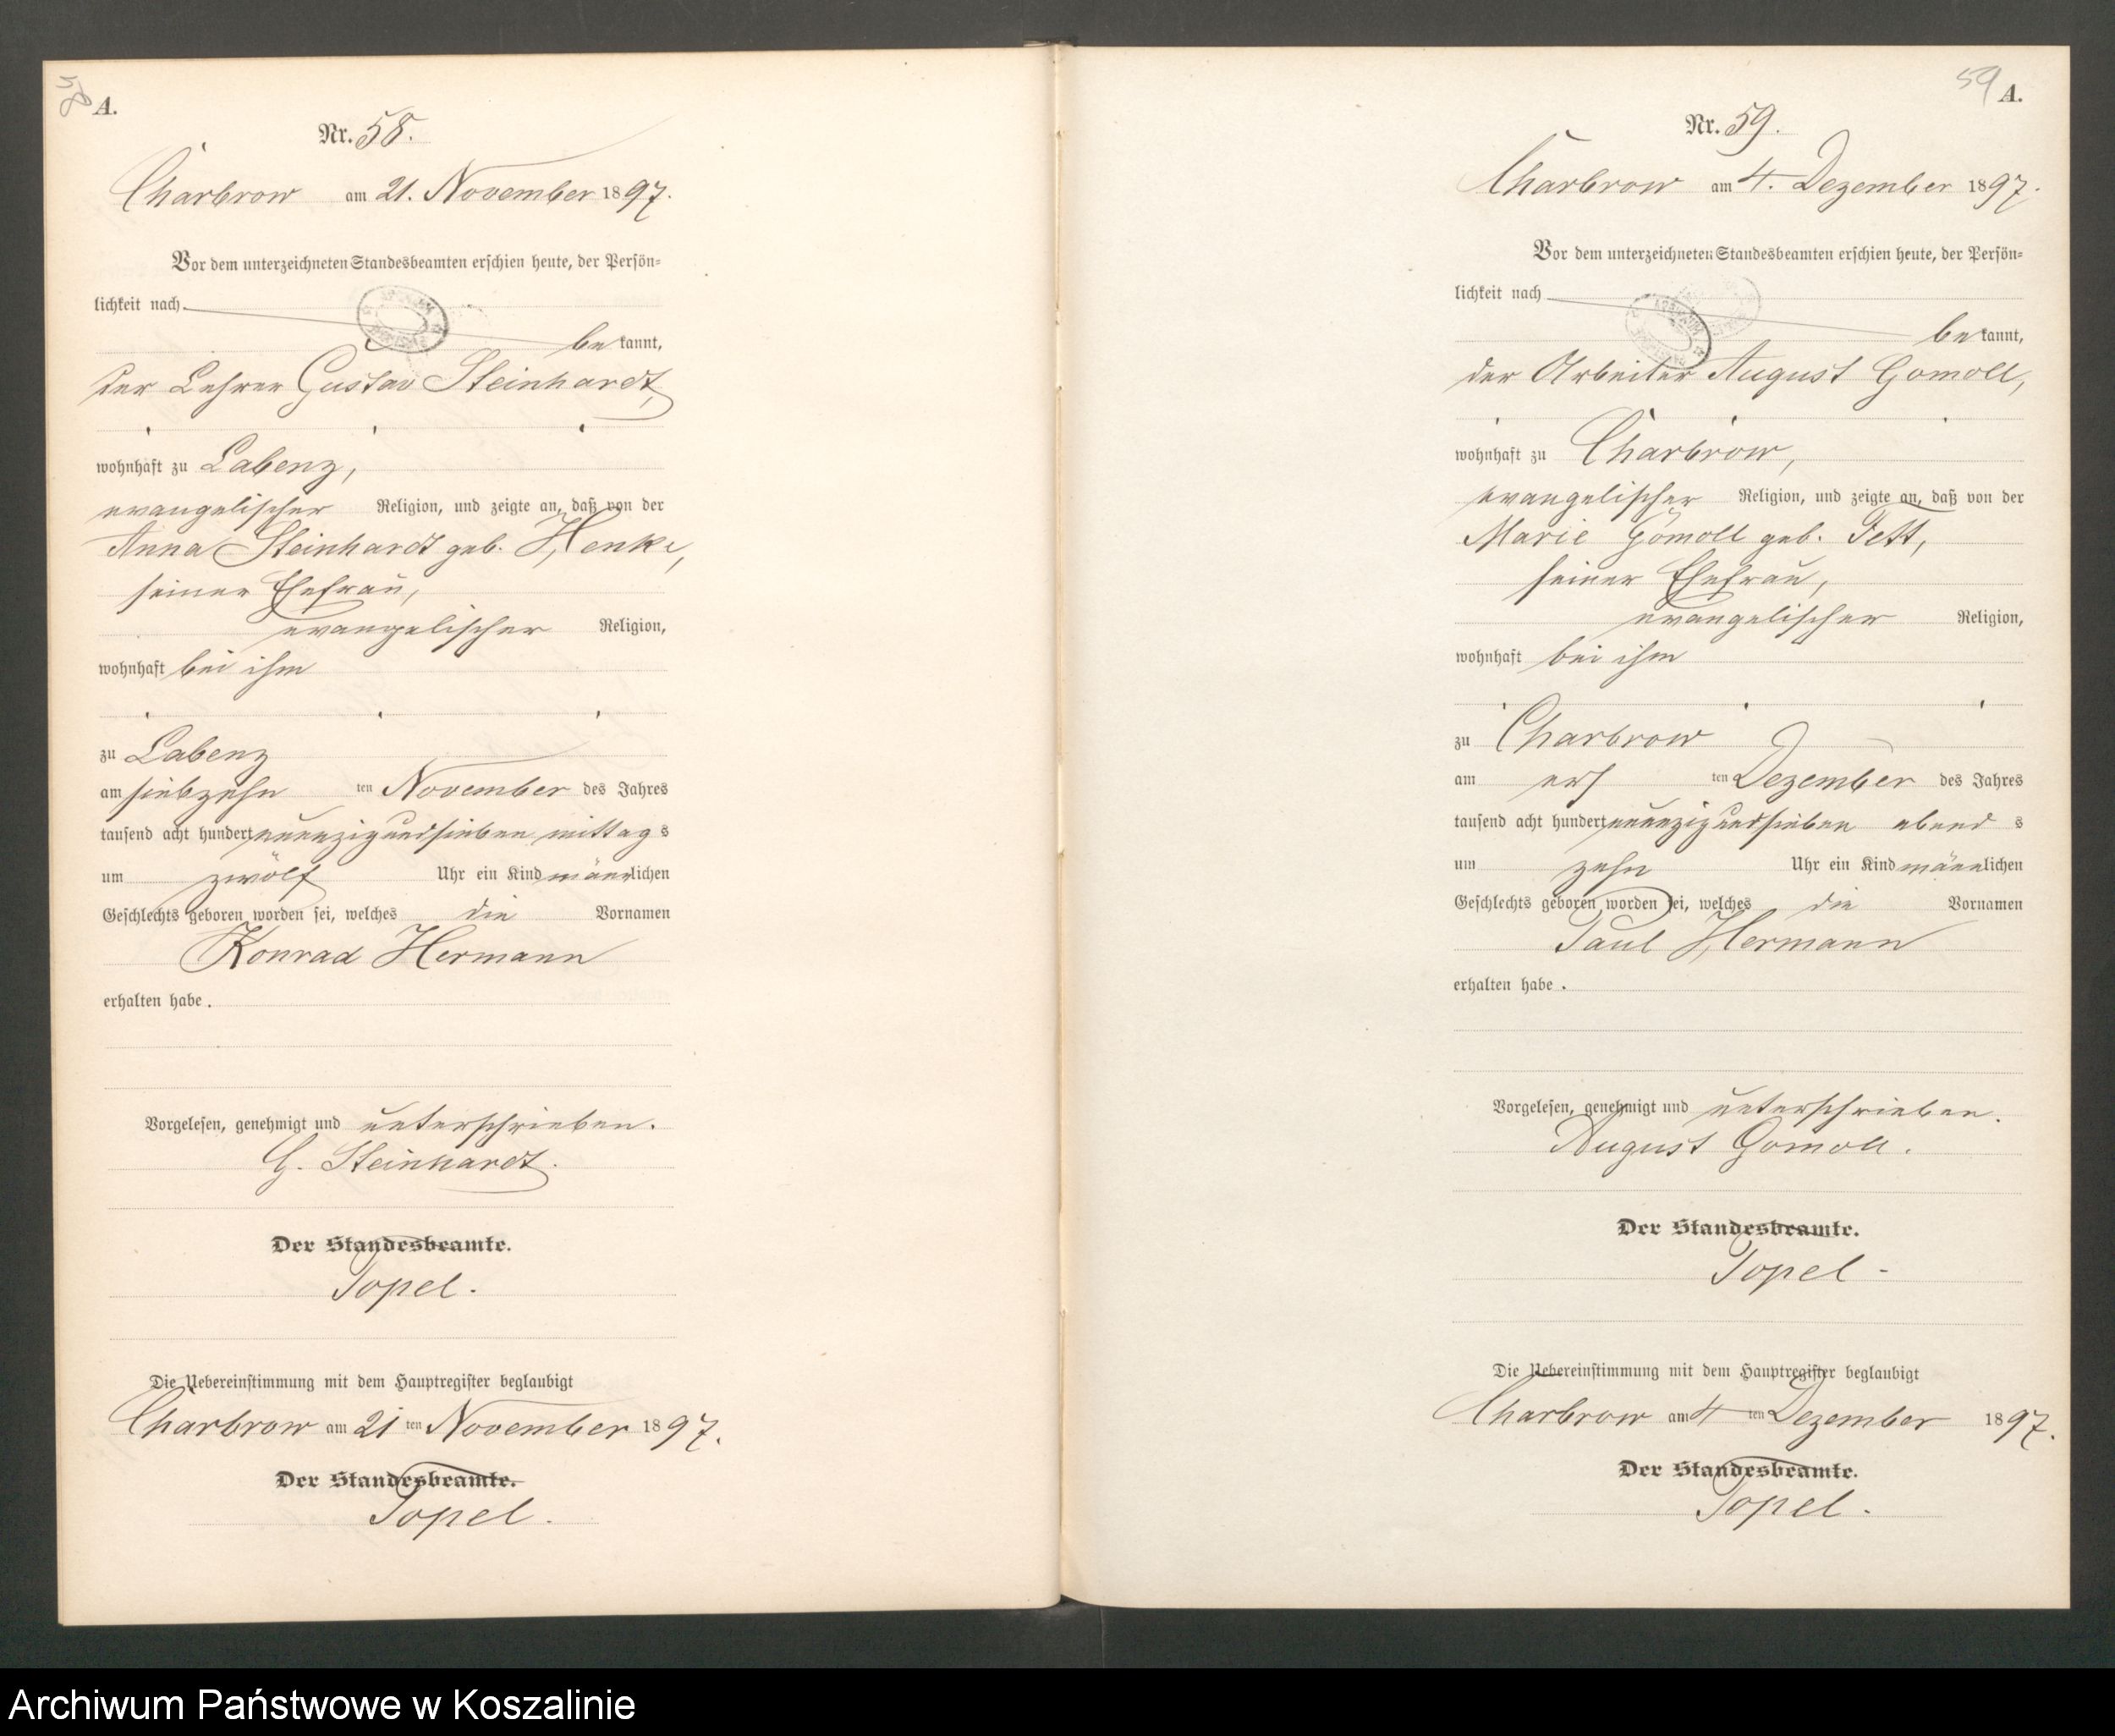 58
A.
Nr. 58.
Charbrow am 21. November 1897.
Vor dem unterzeichneten Standesbeamten erschien heute, der Persön-
lichkeit nach
bekannt,
der Lehrer Gustav Steinhardt,
wohnhaft zu Labenz,
evangelischer Religion, und zeigte an, daß von der
Anna Steinhardt geb. Henke,
seiner Ehefrau,
evangelischer Religion,
wohnhaft bei ihm
zu Labenz
am siebzehn ten November des Jahres
tausend acht hundert neunzig und sieben mittags
um zwölf Uhr ein Kind männlichen
Geschlechts geboren worden sei, welches die Vornamen
Konrad Hermann
erhalten habe.
Vorgelesen, genehmigt und unterschrieben.
G. Steinhardt.
Der Standesbeamte.
Topel.
Die Uebereinstimmung mit dem Hauptregister beglaubigt
Charbrow am 21 ten November 1897.
Der Standesbeamte.
Topel.
59
A.
Nr. 59.
Charbrow am 4. Dezember 1897.
Vor dem unterzeichneten Standesbeamten erschien heute, der Persön-
lichkeit nach
bekannt,
der Arbeiter August Gomoll,
wohnhaft zu Charbrow,
evangelischer Religion, und zeigte an, daß von der
Marie Gomoll geb. Tett,
seiner Ehefrau,
evangelischer Religion,
wohnhaft bei ihm
zu Charbrow
am ers ten Dezember des Jahres
tausend acht hundert neunzig und sieben abends
um zehn Uhr ein Kind männlichen
Geschlechts geboren worden sei, welches die Vornamen
Paul Hermann
erhalten habe.
Vorgelesen, genehmigt und unterschrieben.
August Gomoll.
Der Standesbeamte.
Topel.
Die Uebereinstimmung mit dem Hauptregister beglaubigt
Charbrow am 4 ten Dezember 1897.
Der Standesbeamte.
Topel.
Archiwum Państwowe w Koszalinie